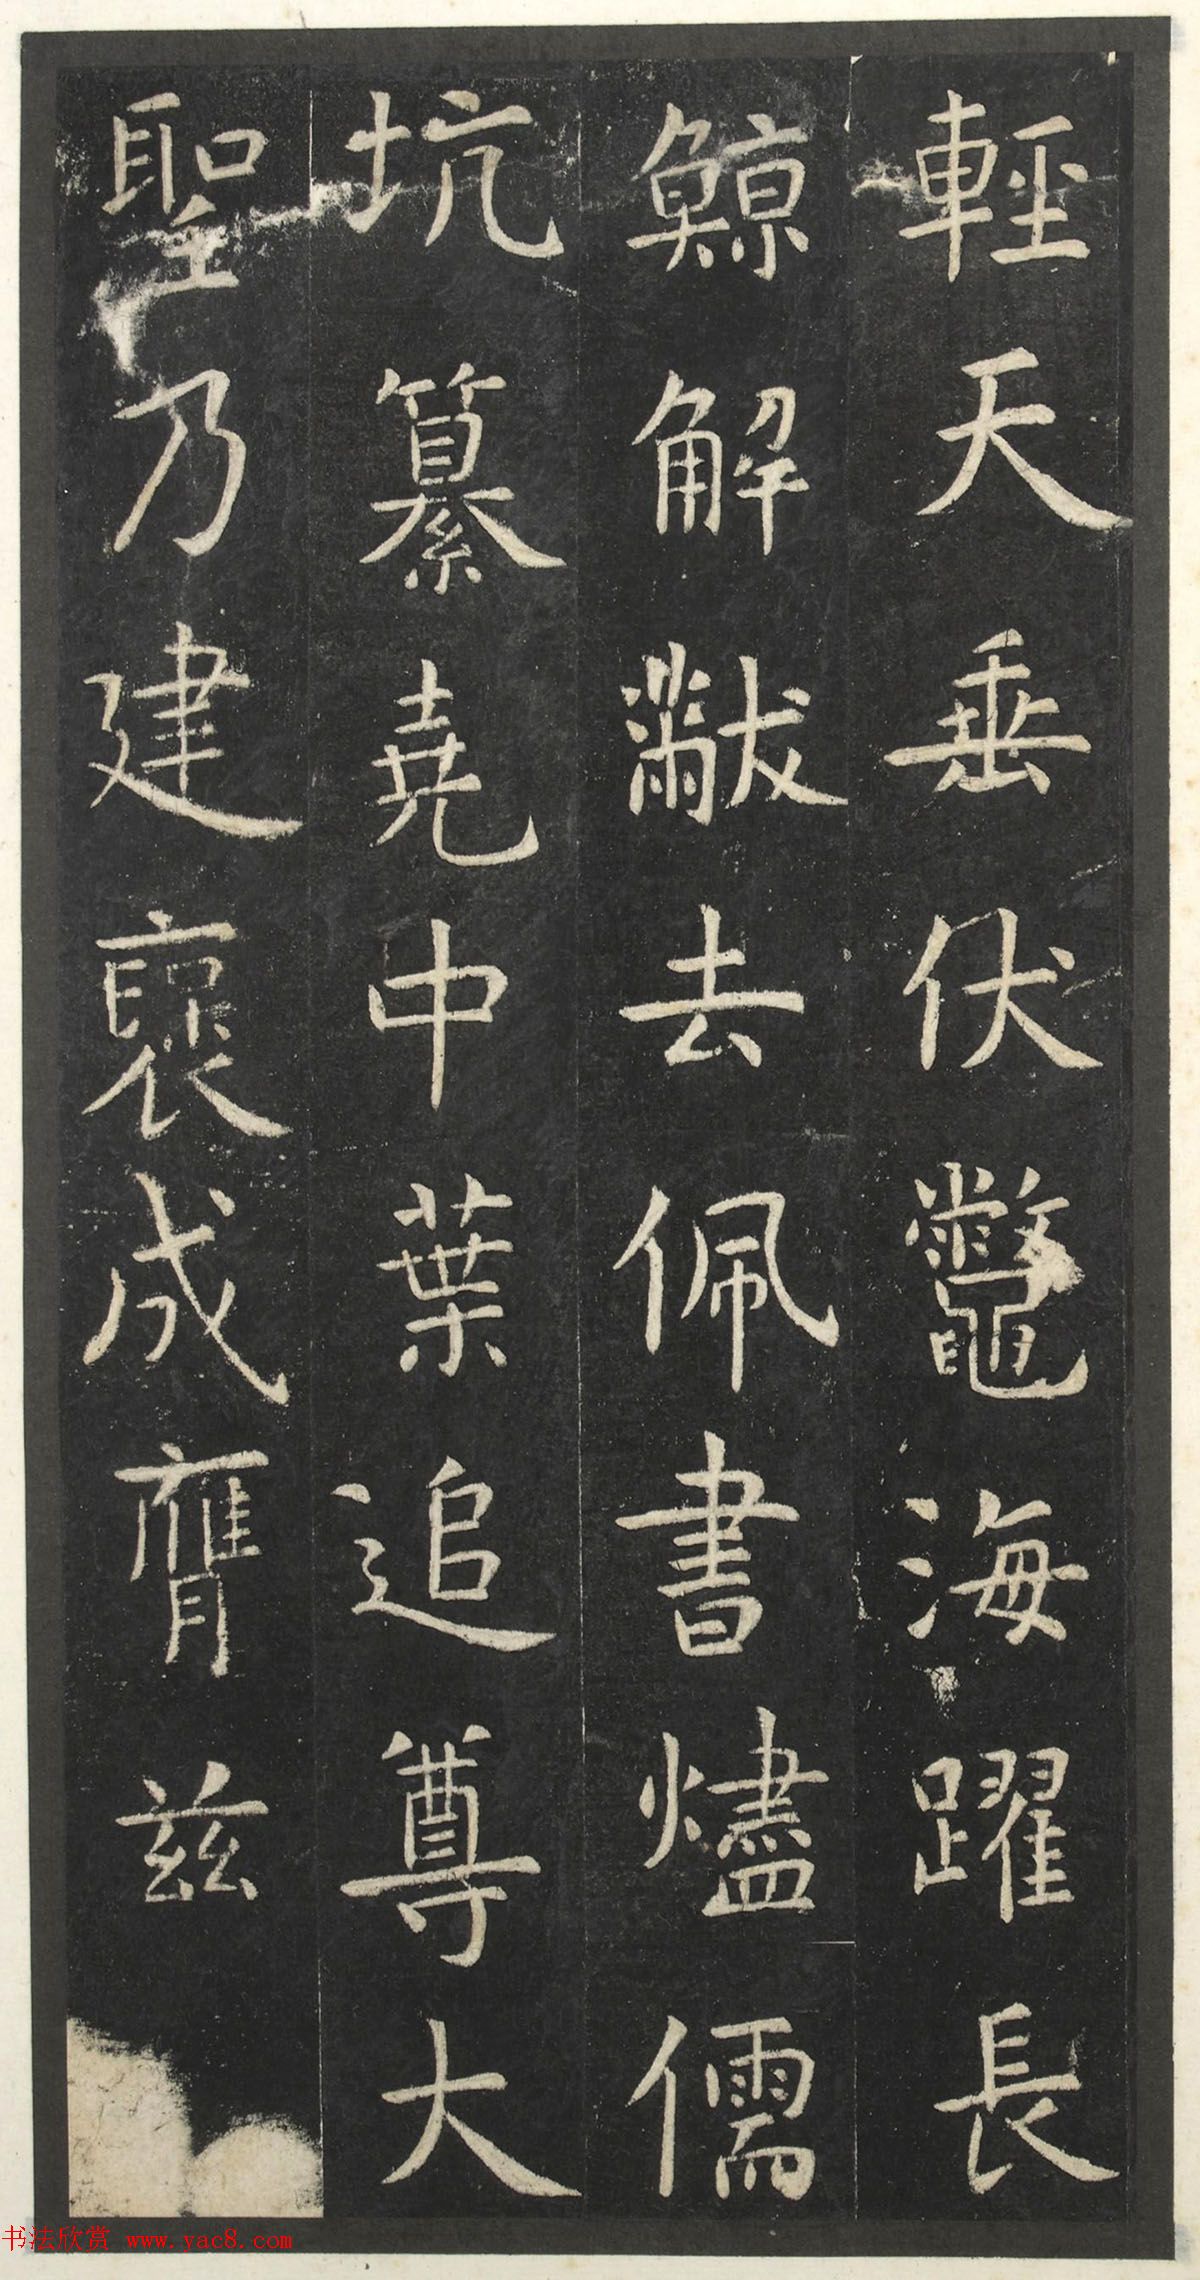 輕天垂伏鼈海躍長
鯨解黻去佩書燼儒
坑纂堯中葉追尊大
聖乃建褒成膺兹
书法欣赏 www.yac8.com